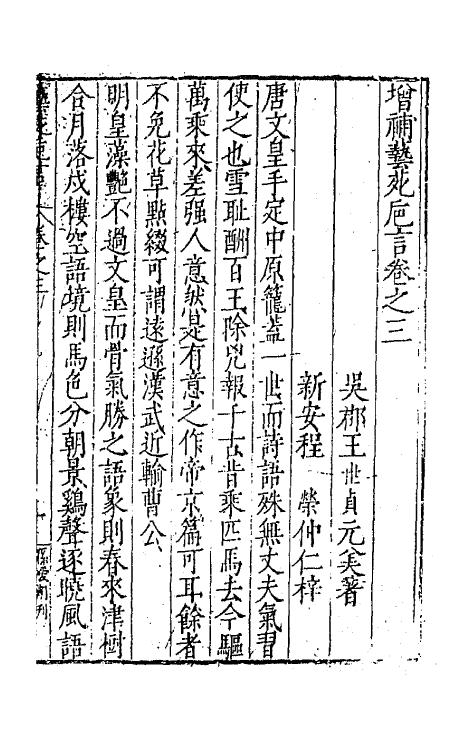 增補藝苑卮言卷之三
吳郡王世貞元美著
新安程 榮仲仁梓
唐文皇手定中原籠蓋一世而詩語殊無丈夫氣習
使之也雪恥酬百王除兇報千古昔乘匹馬去今驅
萬乘來差强人意然是有意之作帝京篇可耳餘者
不免花草點綴可謂遠遜漢武近輸曹公
明皇藻艷不過文皇而骨氣勝之語象則春來津樹
合月落戍樓空語境則馬色分朝景鷄聲逐曉風語
卷之三